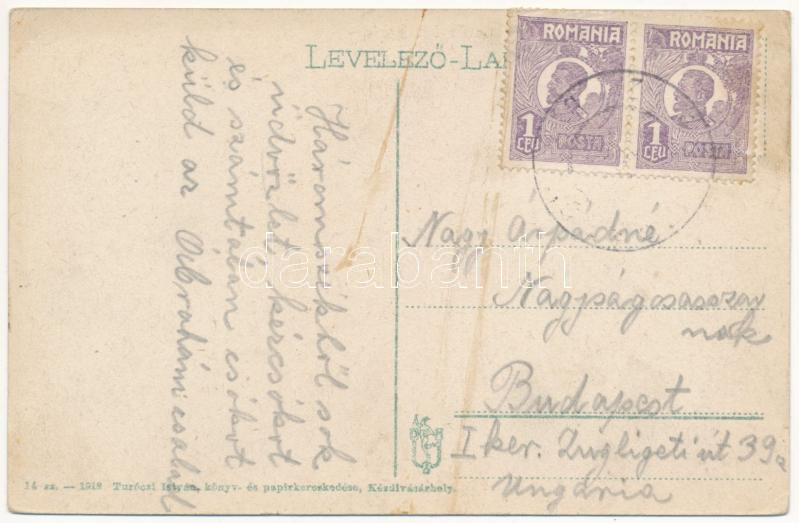 LEVELEZŐ-LA
ROMANIA
1
LEU
POSTA
ROMANIA
1
LEU
POSTA
Háromszékből sok
üdvözlet, kércsókot
és számtalan csókot
küld az Ábrahám család
Nagy Árpádné
Nagyságosasszony
nak
Budapest
I ker. Zugligeti út 39a
Ungária
14 sz. — 1918 Turóczi István, könyv- és papirkereskedése, Kézdivásárhely.
darabanth